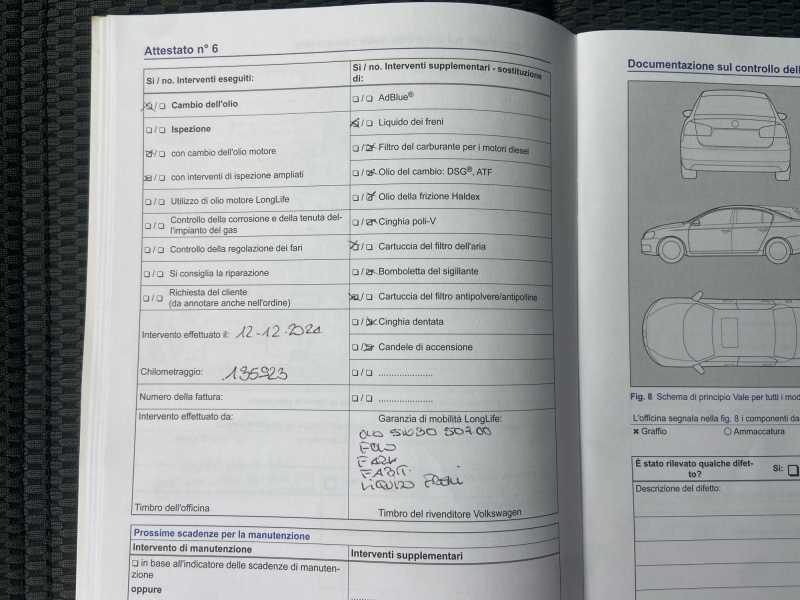 Attestato n° 6
Sì / no. Interventi eseguiti:
❑ / ❑ Cambio dell'olio
❑ / ❑ Ispezione
❑ / ❑ con cambio dell'olio motore
❑ / ❑ con interventi di ispezione ampliati
❑ / ❑ Utilizzo di olio motore LongLife
❑ / ❑ Controllo della corrosione e della tenuta del-
l'impianto del gas
❑ / ❑ Controllo della regolazione dei fari
❑ / ❑ Si consiglia la riparazione
❑ / ❑ Richiesta del cliente
(da annotare anche nell'ordine)
Intervento effettuato il: 12-12-2021
Chilometraggio: 135923
Numero della fattura:
Intervento effettuato da:
Timbro dell'officina
Sì / no. Interventi supplementari - sostituzione
di:
❑ / ❑ AdBlue®
❑ / ❑ Liquido dei freni
❑ / ❑ Filtro del carburante per i motori diesel
❑ / ❑ Olio del cambio: DSG®, ATF
❑ / ❑ Olio della frizione Haldex
❑ / ❑ Cinghia poli-V
❑ / ❑ Cartuccia del filtro dell'aria
❑ / ❑ Bomboletta del sigillante
❑ / ❑ Cartuccia del filtro antipolvere/antipolline
❑ / ❑ Cinghia dentata
❑ / ❑ Candele di accensione
❑ / ❑ .....................
❑ / ❑ .....................
Garanzia di mobilità LongLife:
OLIO 5W30 50700
LIQUIDO FRENI
Timbro del rivenditore Volkswagen
Prossime scadenze per la manutenzione
Intervento di manutenzione
Interventi supplementari
❑ in base all'indicatore delle scadenze di manuten-
zione
oppure
Documentazione sul controllo dell
Fig. 8 Schema di principio Vale per tutti i mod
L'officina segnala nella fig. 8 i componenti da
✖ Graffio
○ Ammaccatura
È stato rilevato qualche difet-
to?
Sì: ❑
Descrizione del difetto: